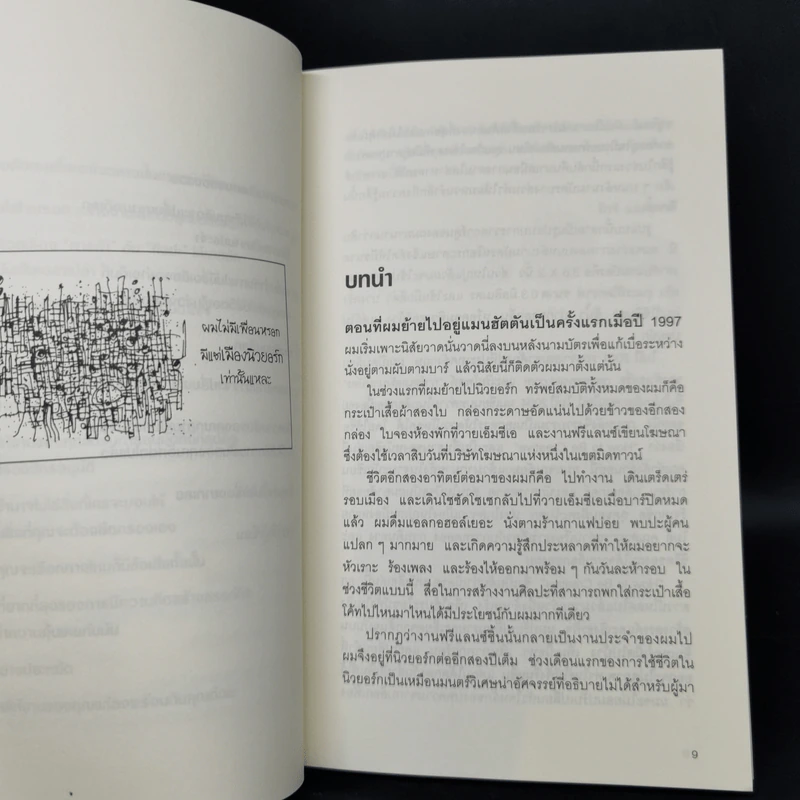 ผมไม่มีเพื่อนหรอก
มีแต่เมืองนิวยอร์ก
เท่านั้นแหละ
บทนำ
ตอนที่ผมย้ายไปอยู่แมนฮัตตันเป็นครั้งแรกเมื่อปี 1997
ผมเริ่มเพาะนิสัยวาดนั่นวาดนี่ลงบนหลังนามบัตรเพื่อแก้เบื่อระหว่าง
นั่งอยู่ตามผับตามบาร์ แล้วนิสัยนี้ก็ติดตัวผมมาตั้งแต่นั้น
ในช่วงแรกที่ผมย้ายไปนิวยอร์ก ทรัพย์สมบัติทั้งหมดของผมก็คือ
กระเป๋าเสื้อผ้าสองใบ กล่องกระดาษอัดแน่นไปด้วยข้าวของอีกสอง
กล่อง ใบจองห้องพักที่วายเอ็มซีเอ และงานฟรีแลนซ์เขียนโฆษณา
ซึ่งต้องใช้เวลาสิบวันที่บริษัทโฆษณาแห่งหนึ่งในเขตมิดทาวน์
ชีวิตอีกสองอาทิตย์ต่อมาของผมก็คือ ไปทำงาน เดินเตร็ดเตร่
รอบเมือง และเดินโซซัดโซเซกลับไปที่วายเอ็มซีเอเมื่อบาร์ปิดหมด
แล้ว ผมดื่มแอลกอฮอล์เยอะ นั่งตามร้านกาแฟบ่อย พบปะผู้คน
แปลก ๆ มากมาย และเกิดความรู้สึกประหลาดที่ทำให้ผมอยากจะ
หัวเราะ ร้องเพลง และร้องไห้ออกมาพร้อม ๆ กันวันละห้ารอบ ใน
ช่วงชีวิตแบบนี้ สื่อในการสร้างงานศิลปะที่สามารถพกใส่กระเป๋าเสื้อ
โค้ทไปไหนมาไหนได้มีประโยชน์กับผมมากทีเดียว
ปรากฏว่างานฟรีแลนซ์ชิ้นนั้นกลายเป็นงานประจำของผมไป
ผมจึงอยู่ที่นิวยอร์กต่ออีกสองปีเต็ม ช่วงเดือนแรกของการใช้ชีวิตใน
นิวยอร์กเป็นเหมือนมนตร์วิเศษน่าอัศจรรย์ที่อธิบายไม่ได้สำหรับผู้มา
9